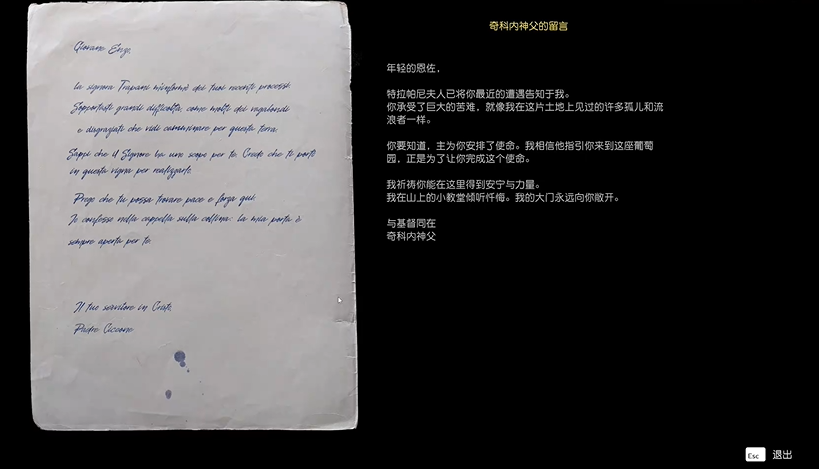 Giovane Enzo,
La signora Trapani m'informò dei tuoi recenti processi.
Sopportasti grandi difficoltà, come molti dei vagabondi
e disgraziati che vidi camminare per questa terra.
Sappi che il Signore ha uno scopo per te. Credo che ti portò
in questa vigna per realizzarlo.
Prego che tu possa trovare pace e forza qui.
Io confesso nella cappella sulla collina: la mia porta è
sempre aperta per te.
Il tuo servitore in Cristo,
Padre Ciccone
奇科内神父的留言
年轻的恩佐，
特拉帕尼夫人已将你最近的遭遇告知于我。
你承受了巨大的苦难，就像我在这片土地上见过的许多孤儿和流
浪者一样。
你要知道，主为你安排了使命。我相信他指引你来到这座葡萄
园，正是为了让你完成这个使命。
我祈祷你能在这里得到安宁与力量。
我在山上的小教堂倾听忏悔。我的大门永远向你敞开。
与基督同在
奇科内神父
Esc 退出